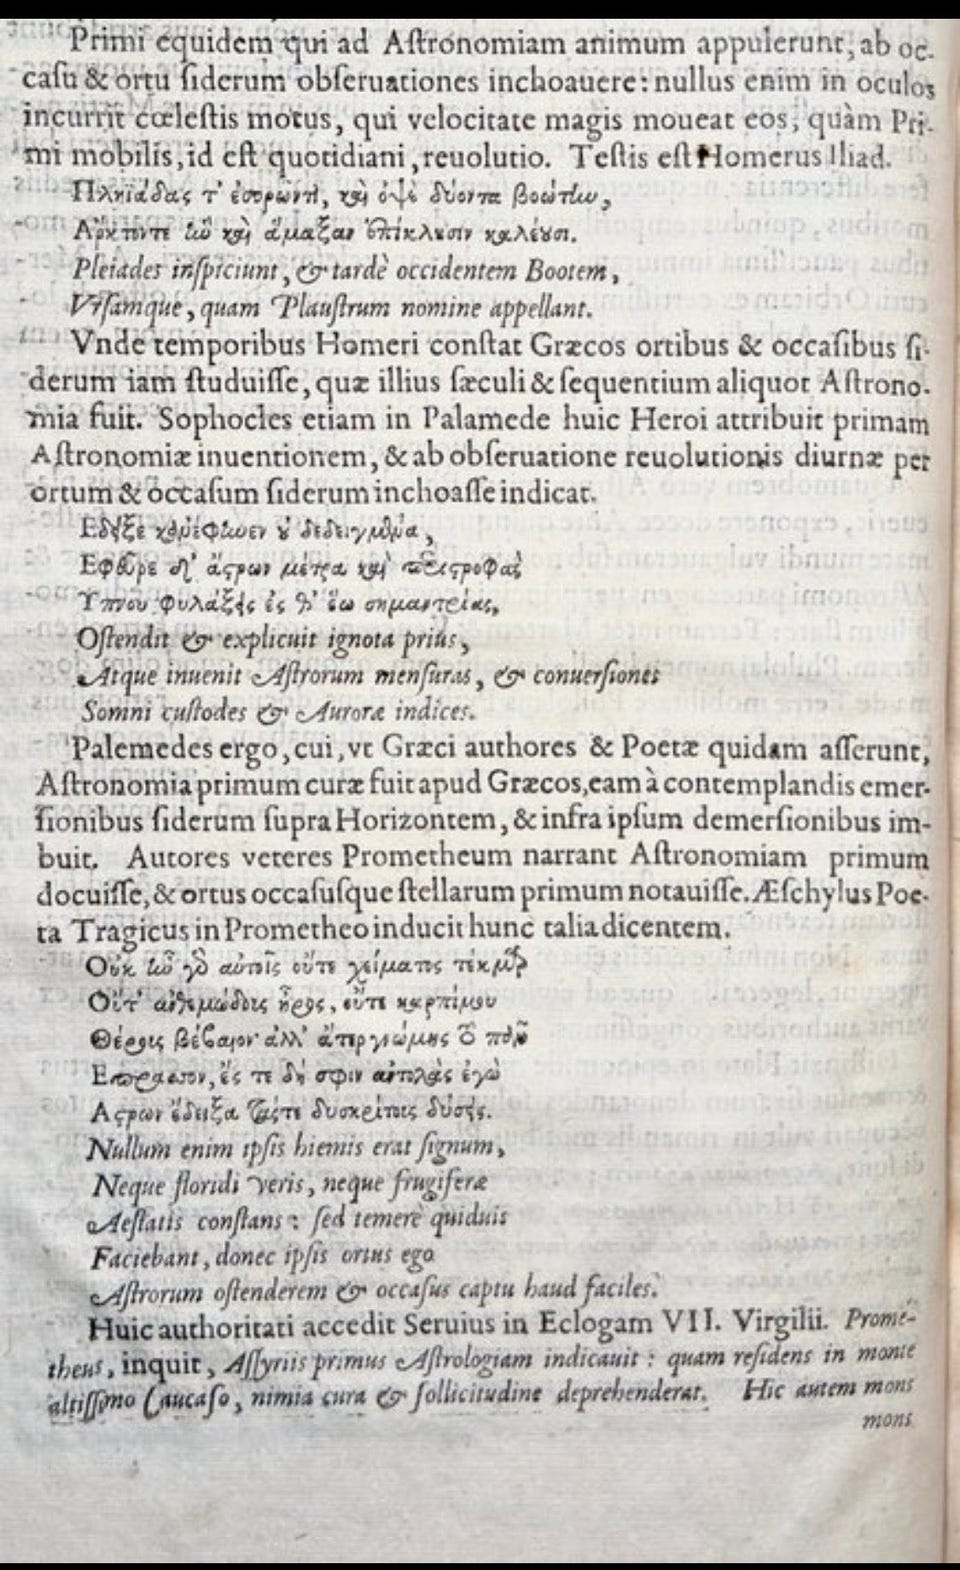 Primi equidem qui ad Aſtronomiam animum appulerunt, ab oc-
caſu & ortu ſiderum obſeruationes inchoauere: nullus enim in oculos
incurrit cœleſtis motus, qui velocitate magis moueat eos, quàm Pri-
mi mobilis, id eſt quotidiani, reuolutio. Teſtis eſt Homerus Iliad.
Πληϊάδας τ' ἐσορῶντι, καὶ ὀψὲ δύοντα βοώτην,
Αρκτοντε ἣν καὶ ἅμαξαν ἐπίκλησιν καλέουσι.
Pleiades inſpiciunt, & tardè occidentem Bootem,
Vrſamque, quam Plauſtrum nomine appellant.
Vnde temporibus Homeri conſtat Græcos ortibus & occaſibus ſi-
derum iam ſtuduiſſe, quæ illius ſæculi & ſequentium aliquot Aſtrono-
mia fuit. Sophocles etiam in Palamede huic Heroi attribuit primam
Aſtronomiæ inuentionem, & ab obſeruatione reuolutionis diurnæ per
ortum & occaſum ſiderum inchoaſſe indicat.
Εδειξε κᾀνέφηνεν οὐ δεδειγμένα,
Εφεῦρε δ' ἄστρων μέτρα καὶ περιστροφὰς
Υπνου φυλάξεις ἐς θ' ἕω σημαντρίας,
Oſtendit & explicuit ignota priùs,
Atque inuenit Aſtrorum menſuras, & conuerſiones
Somni cuſtodes & Auroræ indices.
Palemedes ergo, cui, vt Græci authores & Poetæ quidam aſſerunt,
Aſtronomia primum curæ fuit apud Græcos, eam à contemplandis emer-
ſionibus ſiderum ſupra Horizontem, & infra ipſum demerſionibus im-
buit. Autores veteres Prometheum narrant Aſtronomiam primum
docuiſſe, & ortus occaſuſque ſtellarum primum notauiſſe. Æſchylus Poe-
ta Tragicus in Prometheo inducit hunc talia dicentem.
Οὐκ ἦν γὸ αὐτοῖς οὔτε χείματος τέκμαρ
Οὔτ' ἀνθεμώδους ἦρος, οὔτε καρπίμου
Θέρους βέβαιον· ἀλλ' ἄτερ γνώμης τὸ πᾶν
Επρασσον, ἔς τε δή σφιν ἀντολὰς ἐγὼ
Αστρων ἔδειξα τάς τε δυσκρίτους δύσεις.
Nullum enim ipſis hiemis erat ſignum,
Neque floridi veris, neque frugiferæ
Aeſtatis conſtans: ſed temerè quiduis
Faciebant, donec ipſis ortus ego
Aſtrorum oſtenderem & occaſus captu haud faciles.
Huic authoritati accedit Seruius in Eclogam VII. Virgilii. Prome-
theus, inquit, Aſſyriis primus Aſtrologiam indicauit: quam reſidens in monte
altiſſimo Caucaſo, nimia cura & ſollicitudine deprehenderat. Hic autem mons
mons